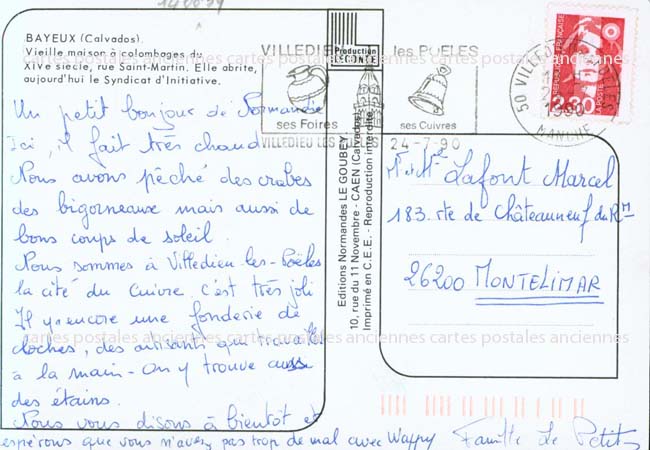 140879
BAYEUX (Calvados).
Vieille maison à colombages du
XIVe siècle, rue Saint-Martin. Elle abrite,
aujourd'hui le Syndicat d'Initiative.
Un petit bonjour de Normandie
Ici, il fait très chaud
Nous avons pêché des crabes
des bigorneaux mais aussi de
bons coups de soleil.
Nous sommes à Villedieu-les-Poëles
la cité du Cuivre. C'est très joli
Il y a encore une fonderie de
cloches, des artisants qui travaillent
à la main - On y trouve aussi
des étains.
Nous vous disons à bientôt et
espérons que vous n'avez pas trop de mal avec Wappy
Famille Le Petit
Production
LECONTE
Editions Normandes LE GOUBEY.
10, rue du 11 Novembre - CAEN (Calvados)
Imprimé en C.E.E. - Reproduction interdite.
VILLEDIEU les POELES
ses Foires ses Cuivres
VILLEDIEU LES POELES 24-7-90
50 VILLEDIEU LES POELES
1990
MANCHE
REPUBLIQUE FRANÇAISE
2,30
LA POSTE
Mr et Mme Lafont Marcel
183. rte de Châteauneuf du Rh
26200 MONTELIMAR
cartes postales anciennes cartes postales anciennes cartes postales anciennes
cartes postales anciennes cartes postales anciennes cartes postales anciennes